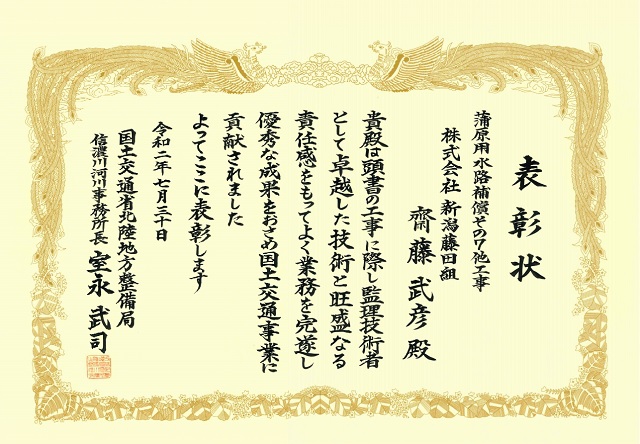 表彰状
蒲原用水路補償その7他工事
株式会社 新潟藤田組
齋藤 武彦 殿
貴殿は頭書の工事に際し監理技術者
として卓越した技術と旺盛なる
責任感をもってよく業務を完遂し
優秀な成果をおさめ国土交通事業に
貢献されました
よってここに表彰します
令和二年七月三十日
国土交通省北陸地方整備局
信濃川河川事務所長 室永 武司